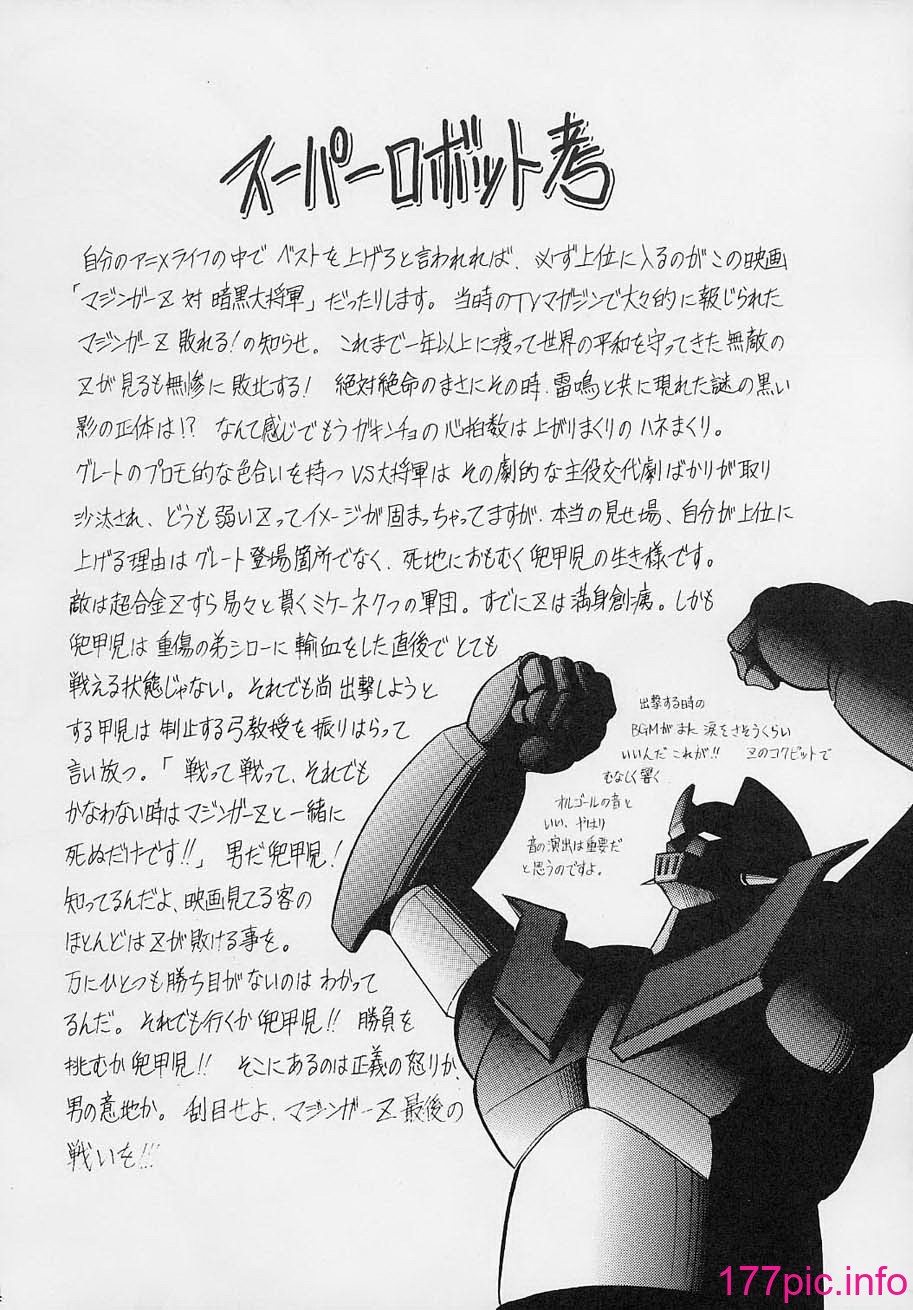 スーパーロボット考
自分のアニメライフの中で ベストを上げろと言われれば、必ず上位に入るのがこの映画
「マジンガーZ 対 暗黒大将軍」だったりします。当時のTVマガジンで大々的に報じられた
マジンガーZ 敗れる!の知らせ。これまで一年以上に渡って世界の平和を守ってきた無敵の
Zが見るも無惨に敗北する! 絶対絶命のまさにその時、雷鳴と共に現れた謎の黒い
影の正体は!? なんて感じでもうガキンチョの心拍数は上がりまくりのハネまくり。
グレートのプロモ的な色合いを持つ VS大将軍は その劇的な主役交代劇ばかりが取り
沙汰され、どうも弱いZってイメージが固まっちゃってますが、本当の見せ場、自分が上位に
上げる理由はグレート登場箇所でなく、死地におもむく兜甲児の生き様です。
敵は超合金Zすら易々と貫くミケーネ7つの軍団。すでにZは満身創痍。しかも
兜甲児は重傷の弟シローに輸血をした直後でとても
戦える状態じゃない。それでも尚 出撃しようと
する甲児は 制止する弓教授を振りはらって
言い放つ。「戦って戦って、それでも
かなわない時はマジンガーZと一緒に
死ぬだけです!!」男だ兜甲児!
知ってるんだよ、映画見てる客の
ほとんどはZが敗ける事を。
万にひとつも勝ち目がないのは わかって
るんだ。それでも行くか兜甲児!! 勝負を
挑むか兜甲児!! そこにあるのは正義の怒りか、
男の意地か。刮目せよ、マジンガーZ 最後の
戦いを!!!
出撃する時の
BGMがまた 涙をさそうくらい
いいんだ これが!! Zのコクピットで
むなしく響く
オルゴールの音と
いい、やはり
音の演出は重要だ
と思うのですよ。
177pic.info